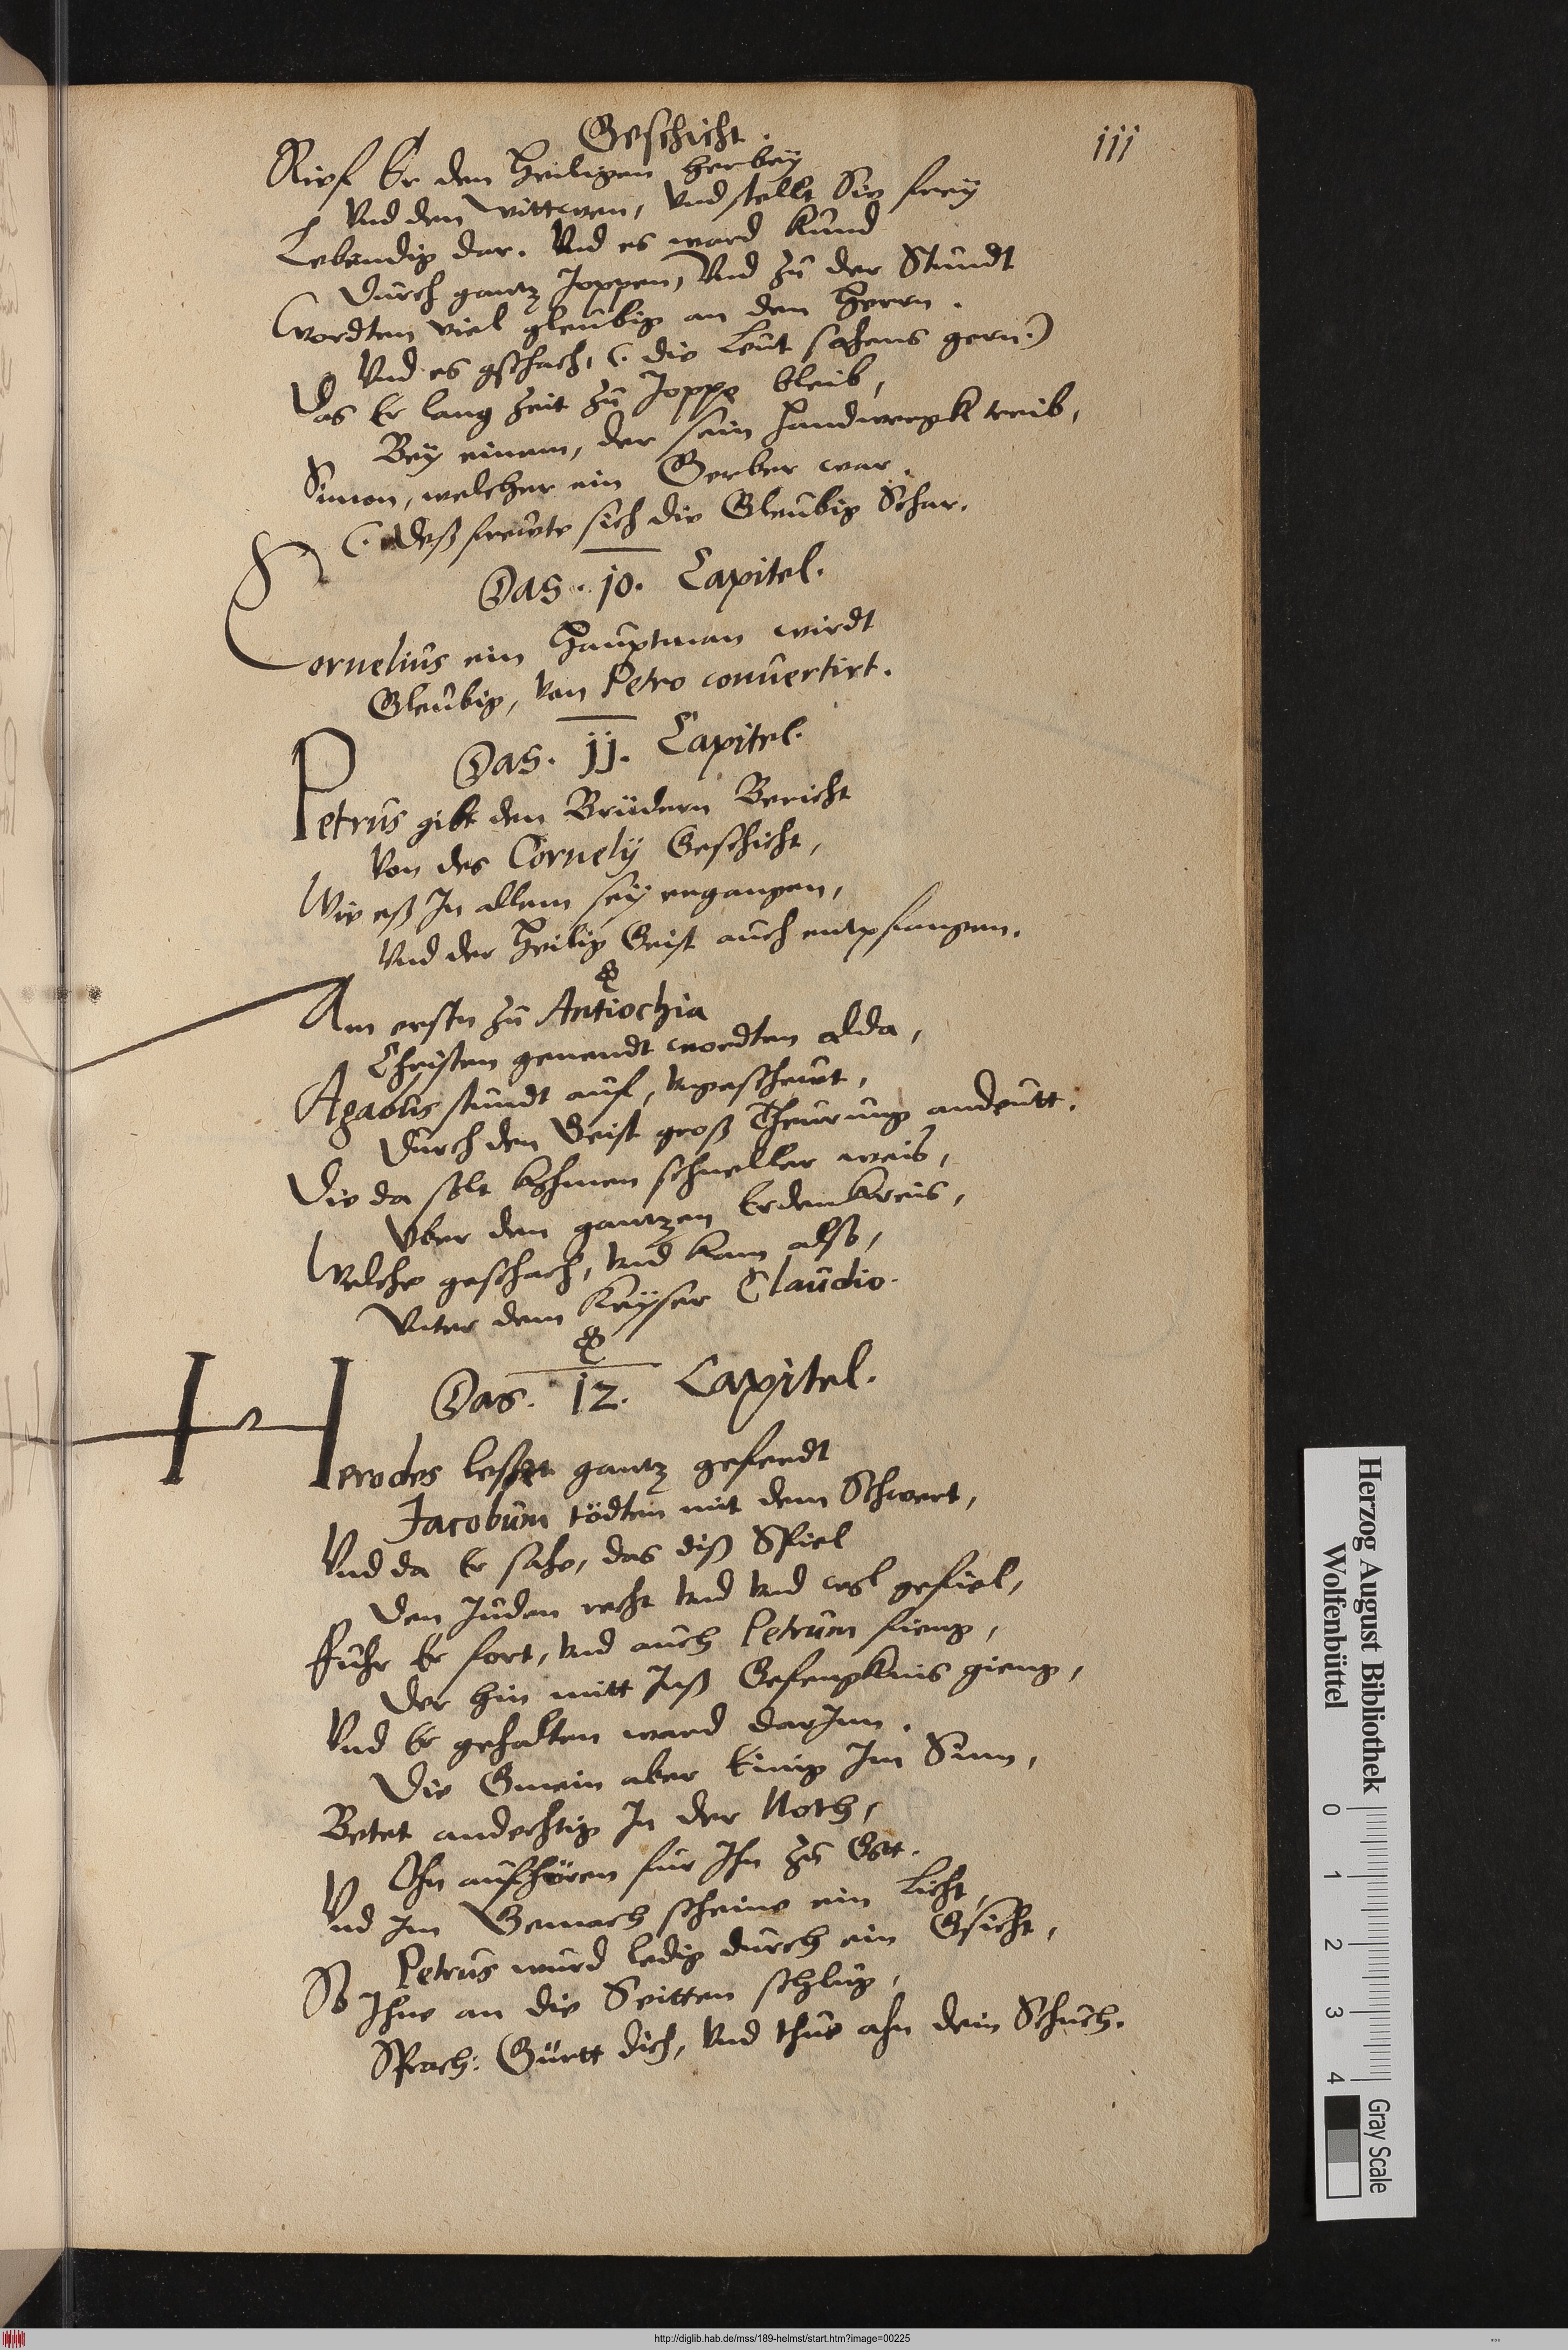 Geschicht.
iij
Rief Er den Heiligen herbey
Vnd den wittwen, Vnd stellt Sie frey
Lebendig dar. Vnd es ward kund
Durch gantz Joppen, Vnd zu der Stundt
Wordten viel gleubig an den Herrn.
Vnd es gschach, (. die Leut sahens gern.)
Das Er lang zeit zu Joppe bleib,
Bey einem, der sein Handwergk treib,
Simon, welcher ein Gerber war.
(. deß frewte sich die Gleubig Schar.
Das. 10. Capitel.
Cornelius ein Hauptman wirdt
Gleubig, von Petro conuertirt.
Das. 11. Capitel.
Petrus gibt den Brüdern Bericht
Von des Cornelij Geschicht,
Wie eß In allem sey ergangen,
Vnd der Heilig Geist auch entpfangen.
Am ersten zu Antiochia
Christen genendt wordten alda,
Agabus stundt auf, vngescheut,
Durch den Geist groß Theurung andeutt.
Die da solt kohmen schneller weis,
Vber den gantzen Erdenkreis,
Welche geschach, vnd kam also,
Vnter dem Keyser Claudio.
Das. 12. Capitel.
Herodes lesset gantz geferdt
Jacobum tödten mit dem Schwert,
Vnd da Er sahe, das diß Spiel
Den Juden recht vnd vnd wol gefiel,
Fuhr Er fort, vnd auch Petrum fieng,
Der hin mitt Inß Gefengknis gieng,
Vnd Er gehalten ward darInn.
Die Gmein aber Einig Im Sinn,
Betet andechtig In der Noth,
Ohn aufhören für Ihn zu Gott.
Vnd Im Gemach scheine ein Licht,
Petrus wurd ledig durch ein Gsicht,
So Ihne an die Seitten schlug,
Sprach: Gürtt dich, Vnd thue ahn dein Schuch.
Herzog August Bibliothek
Wolfenbüttel
0 1 2 3 4
Gray Scale
http://diglib.hab.de/mss/189-helmst/start.htm?image=00225